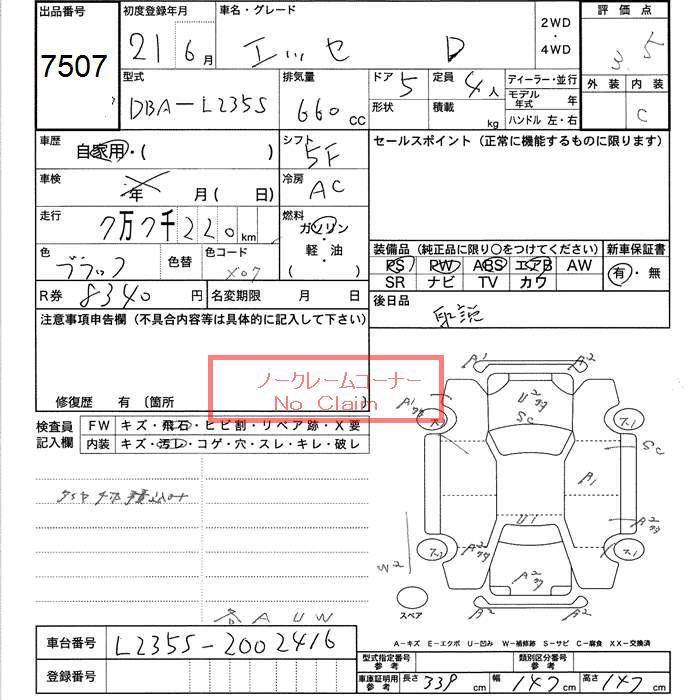 出品番号 初度登録年月 車名・グレード 2WD・4WD 評価点
7507 21 6月 エッセ D 3.5
型式 排気量 ドア 5 定員 4人 ディーラー・並行 外装 内装
DBA-L235S 660 CC 形状 積載 kg モデル年式 年 C
ハンドル 左・右
車歴 自家用・( ) シフト 5F セールスポイント(正常に機能するものに限ります)
車検 年 月( 日) 冷房 AC
走行 7万7千220km 燃料 ガソリン・軽・油 ( )
色 ブラック 色替 色コード X07
装備品(純正品に限り○をつけてください) 新車保証書
PS PW ABS エアB AW 有・無
SR ナビ TV カワ
R券 8340円 名変期限 月 日 後日品
取説
注意事項申告欄(不具合内容等は具体的に記入して下さい)
ノークレームコーナー
No Claim
修復歴 有〔箇所 〕
検査員記入欄 FW キズ・飛石・ヒビ割・リペア跡・X要
内装 キズ・汚レ・コゲ・穴・スレ・キレ・破レ
A1 A2
A1 U2
SC
SC
A1
U1
A2
W2 A2 A2
スペア A2 A2
各 A U W
A-キズ E-エクボ U-凹み W-補修跡 S-サビ C-腐食 XX-交換済
車台番号 L235S-2002416
型式指定番号 参考 類別区分番号 参考
登録番号
車庫証明用 参考 長さ 339 cm 幅 147 cm 高さ 147 cm